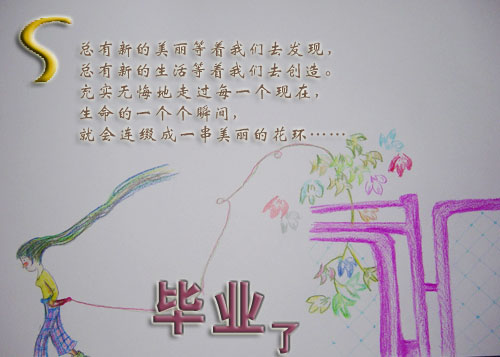 S
总有新的美丽等着我们去发现，
总有新的生活等着我们去创造。
充实无悔地走过每一个现在，
生命的一个个瞬间，
就会连缀成一串美丽的花环……
毕业了